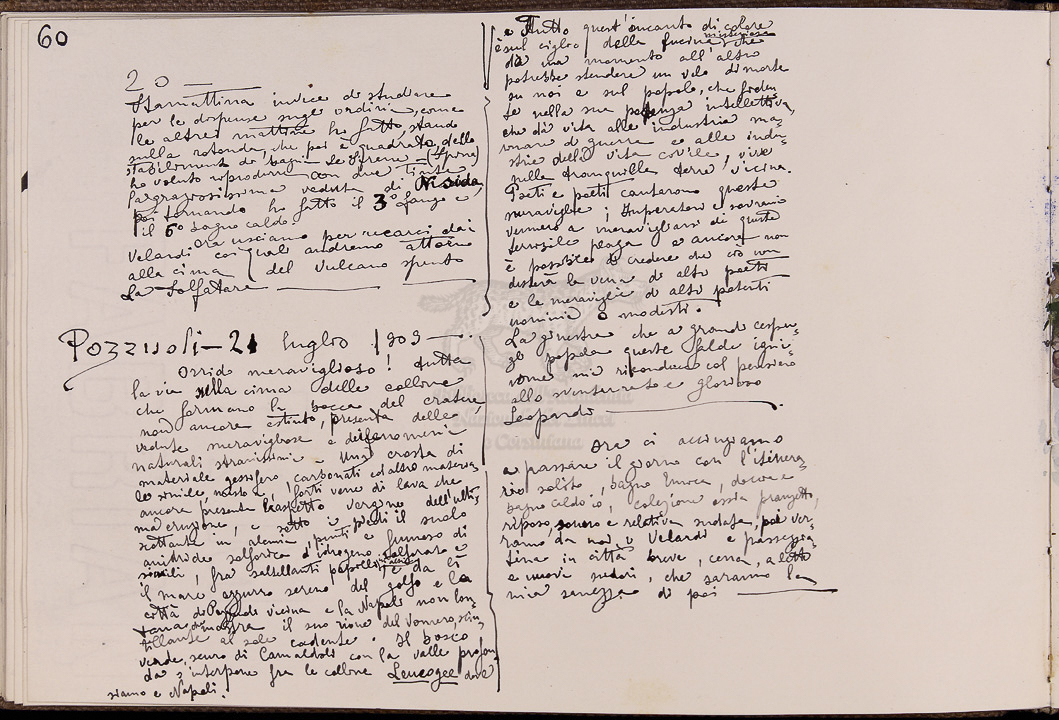 60
20 —
Stamattina invece di studiare
per le dispense sugli ordini, come
le altre mattine ho fatto, stando
sulla rotonda, che poi è quadrata, dello
stabilimento di bagni - Le Sirene - (Sposa)
ho voluto riprodurre con due tinte
la graziosissima veduta di Nisida
poi Fernando ha fatto il 3° fango e
il 6° bagno caldo
Ora usciamo per recarci dai
Velardi coi quali andremo attorno
alla cima del vulcano spento
La Solfatara —
Pozzuoli - 21 luglio 1909 —
Orrido meraviglioso! tutta
la via sulla cima delle colline
che formano la bocca del cratere,
non ancora estinto, presenta delle
vedute meravigliose e di fenomeni
naturali stranissimi - Una crosta di
materiale gessifero, carbonati ed altro materia-
le simile, nasconde, forti vene di lava che
ancora presenta l'aspetto vergine dell'ulti-
ma eruzione, e sotto i piedi il suolo
scottante in alcuni punti e fumoso di
anidride solforica d'idrogeno solforato e
simili, fra saltellanti
il mare azzurro sereno del golfo e la
città di Pozzuoli vicina e la Napoli non lon-
tana che mostra il suo rione del Vomero, scin-
tillante al sole cadente. Il bosco
verde, scuro di Camaldoli con la valle profon-
da s'interpone fra le colline Leucogee dove
siamo e Napoli.
e tutto quest'incanto di colore
è sul ciglio della fucina misteriosa che
da un momento all'altro
potrebbe stendere un velo di morte
su noi e sul popolo, che fiden-
te nella sua potenza intellettiva,
che dà vita alle industrie ma-
rinare di guerra e alle indu-
strie della vita civile, vive
nella tranquilla terra vicina.
Poeti e poeti cantarono queste
meraviglie; Imperatori e sovrani
vennero a meravigliarsi di questa
terribile plaga e ancora non
è possibile di credere che ciò non
desterà la vena di altri poeti
e la meraviglia di altri potenti
uomini o modesti.
La ginestra che a grandi cespu-
gli popola queste falde igni-
vome mi riconduce col pensiero
allo sventurato e glorioso
Leopardi —
Ora ci accingiamo
a passare il giorno con l'itinera-
rio solito, bagno Enrica, doccia e
bagno caldo io, colezione ossia pranzetto,
riposo, sonno e relativa sudata, poi ver-
ranno da noi i Velardi e passeggia-
tina in città breve, cena, a letto
e nuovi sudori, che saranno la
mia salvezza di poi —